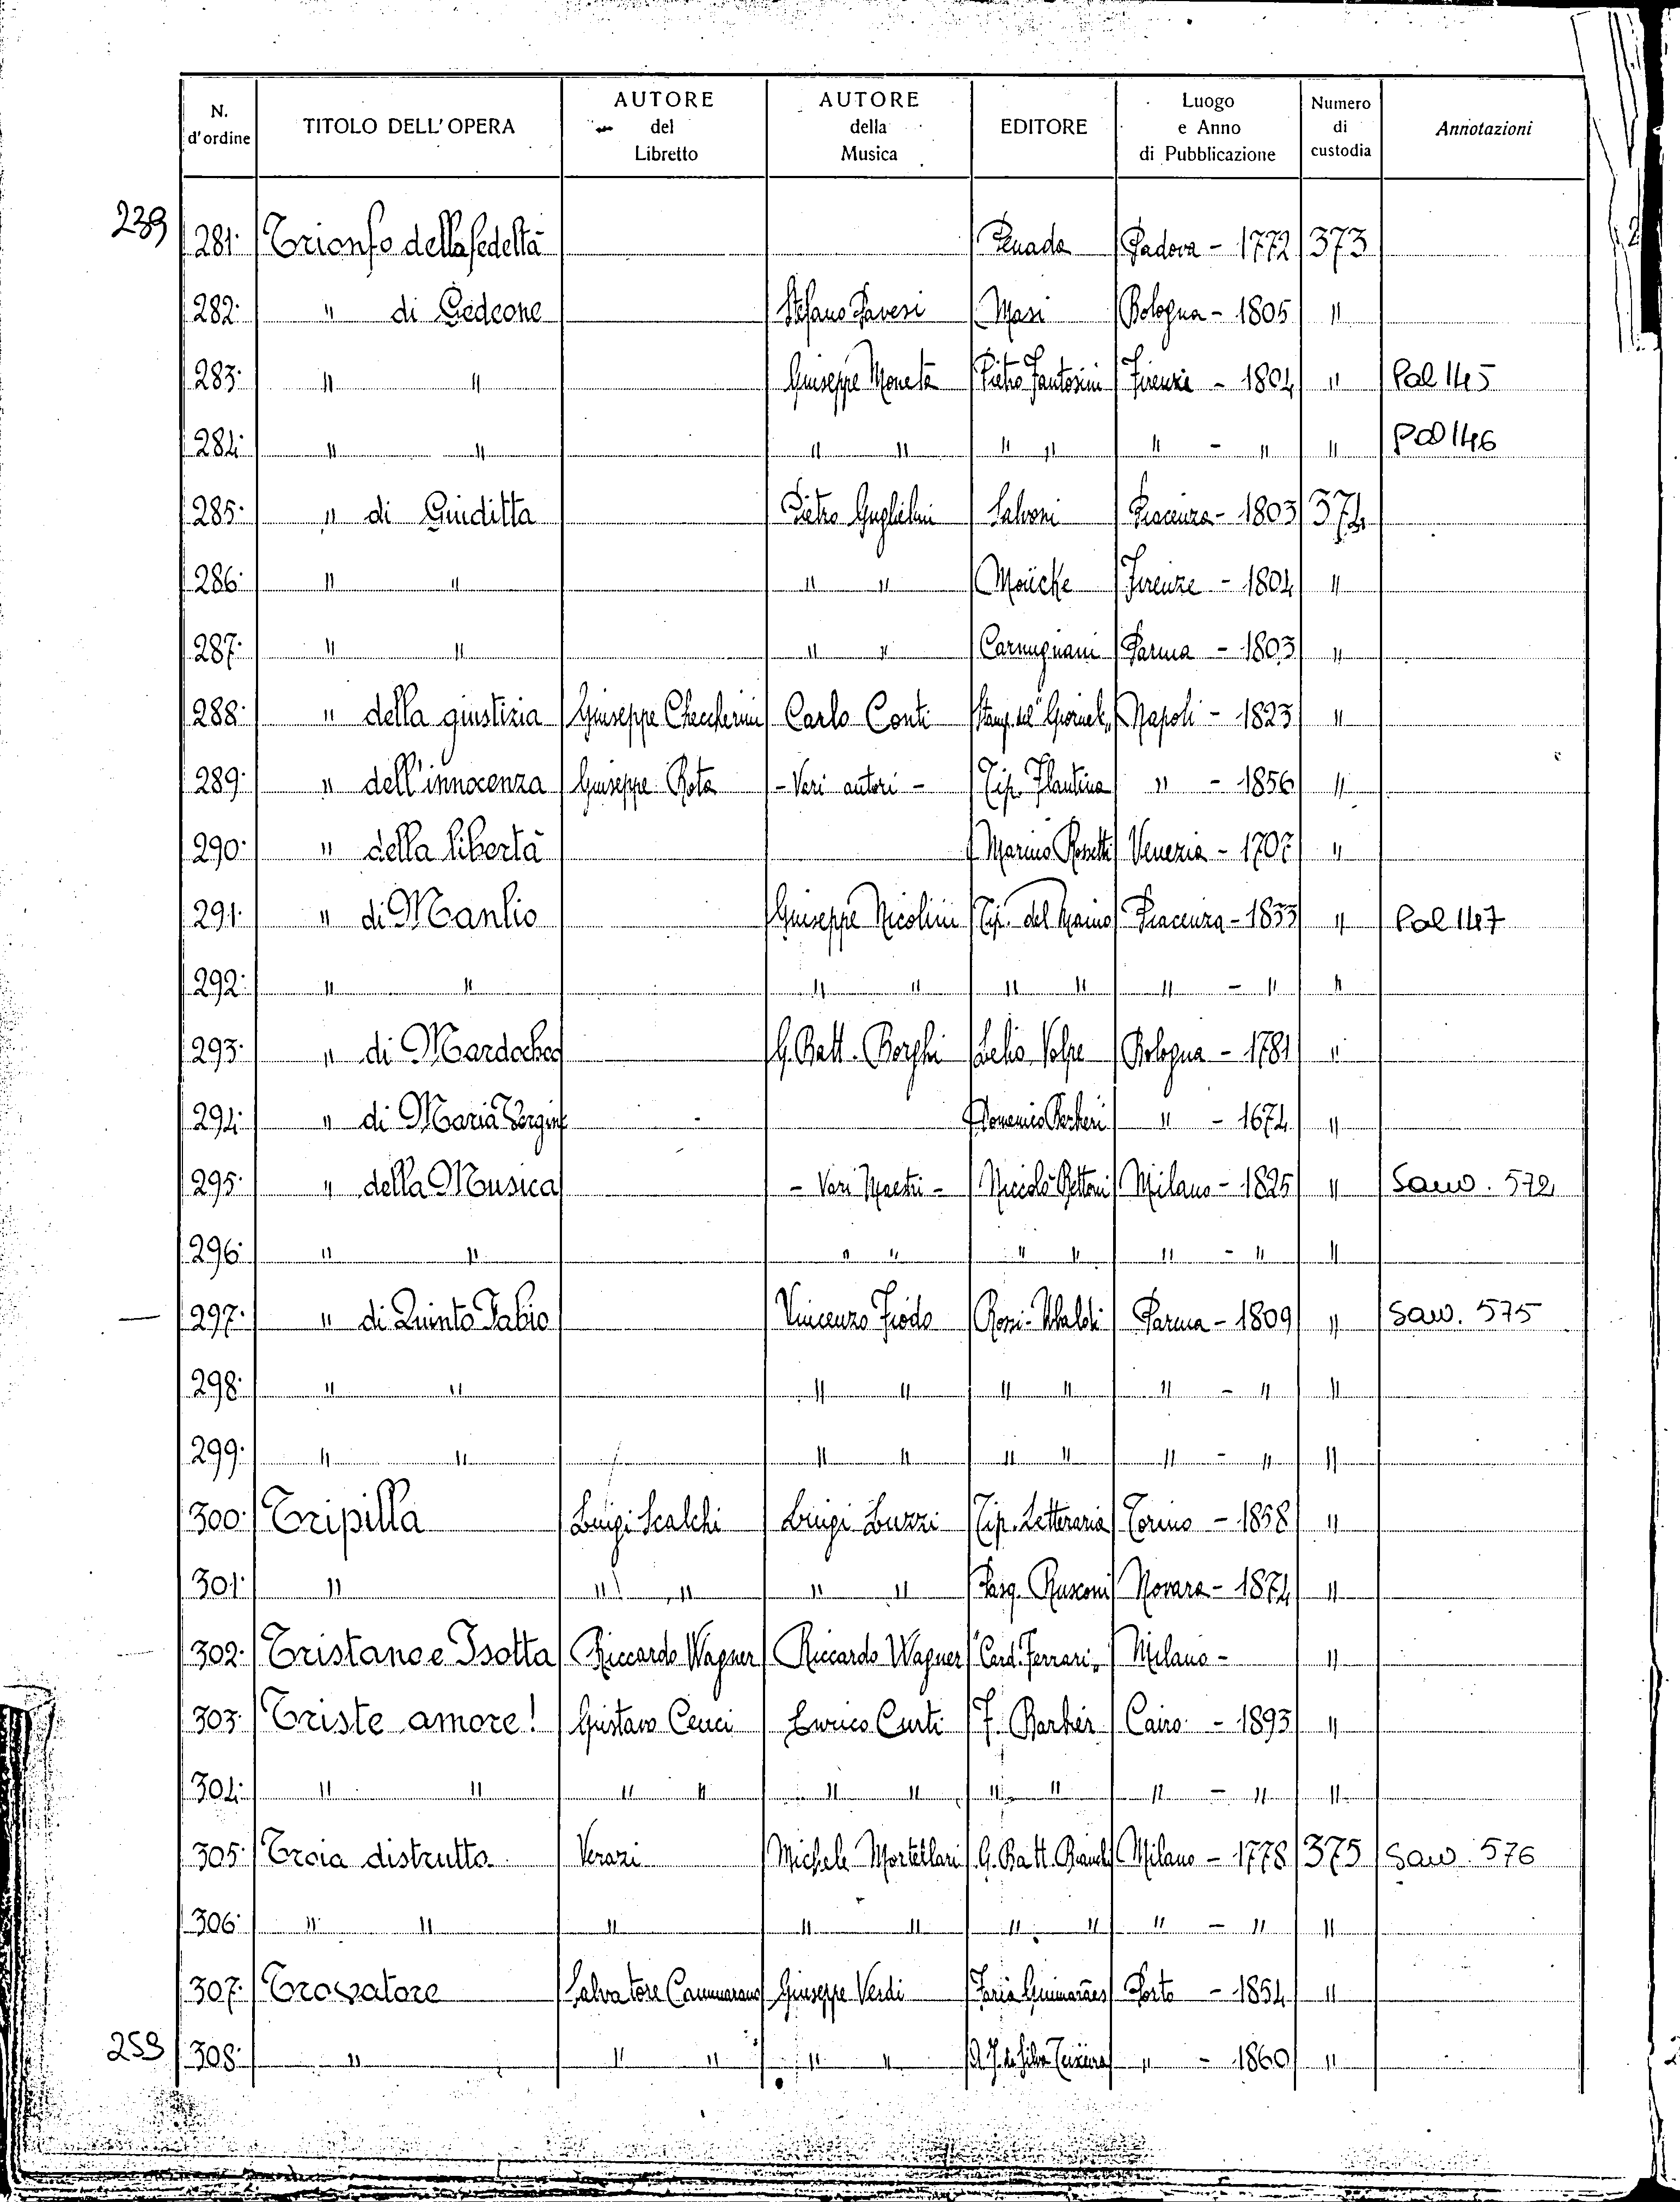 N. d'ordine | TITOLO DELL'OPERA | AUTORE del Libretto | AUTORE della Musica | EDITORE | Luogo e Anno di Pubblicazione | Numero di custodia | Annotazioni
239
281. | Trionfo della fedeltà | | | Penada | Padova - 1772 | 373
282. | " di Gedeone | | Stefano Pavesi | Masi | Bologna - 1805 | "
283. | " " | | Giuseppe Moneta | Pietro Fantosini | Firenze - 1804 | " | Pal 145
284. | " " | | " " | " " | " - " | " | Pal 146
285. | " di Giuditta | | Pietro Guglielmi | Salvoni | Piacenza - 1803 | 374
286. | " " | | " " | Moücke | Firenze - 1804 | "
287. | " " | | " " | Carmignani | Parma - 1803 | "
288. | " della giustizia | Giuseppe Checcherini | Carlo Conti | Stamp. del "Giornale" | Napoli - 1823 | "
289. | " dell'innocenza | Giuseppe Rota | - Vari autori - | Tip. Flautina | " - 1856 | "
290. | " della libertà | | | Marino Rossetti | Venezia - 1707 | "
291. | " di Manlio | | Giuseppe Nicolini | Tip. del Maino | Piacenza - 1833 | " | Pal 147
292. | " " | | " " | " " | " - " | "
293. | " di Mardocheo | | G. Batt. Borghi | Lelio Volpe | Bologna - 1781 | "
294. | " di Maria Vergine | | | Domenico Barbieri | " - 1674 | "
295. | " della Musica | | - Vari Maestri - | Niccolò Bettoni | Milano - 1825 | " | Saw. 572
296. | " " | | " " | " " | " - " | "
297. | " di Quinto Fabio | | Vincenzo Fiodo | Rossi-Ubaldi | Parma - 1809 | " | Saw. 575
298. | " " | | " " | " " | " - " | "
299. | " " | | " " | " " | " - " | "
300. | Tripilla | Luigi Scalchi | Luigi Luzzi | Tip. Letteraria | Torino - 1858 | "
301. | " | " " | " " | Pasq. Rusconi | Novara - 1874 | "
302. | Tristano e Isotta | Riccardo Wagner | Riccardo Wagner | "Card. Ferrari" | Milano - | "
303. | Triste amore! | Gustavo Cenci | Enrico Curti | F. Barbier | Cairo - 1893 | "
304. | " " | " " | " " | " " | " - " | "
305. | Troia distrutta | Verazi | Michele Mortellari | G. Batt. Bianchi | Milano - 1778 | 375 | Saw. 576
306. | " " | " | " " | " " | " - " | "
307. | Trovatore | Salvatore Cammarano | Giuseppe Verdi | Faria Guimarães | Porto - 1854 | "
259
308. | " | " " | " " | A. J. da Silva Teixeira | " - 1860 | "